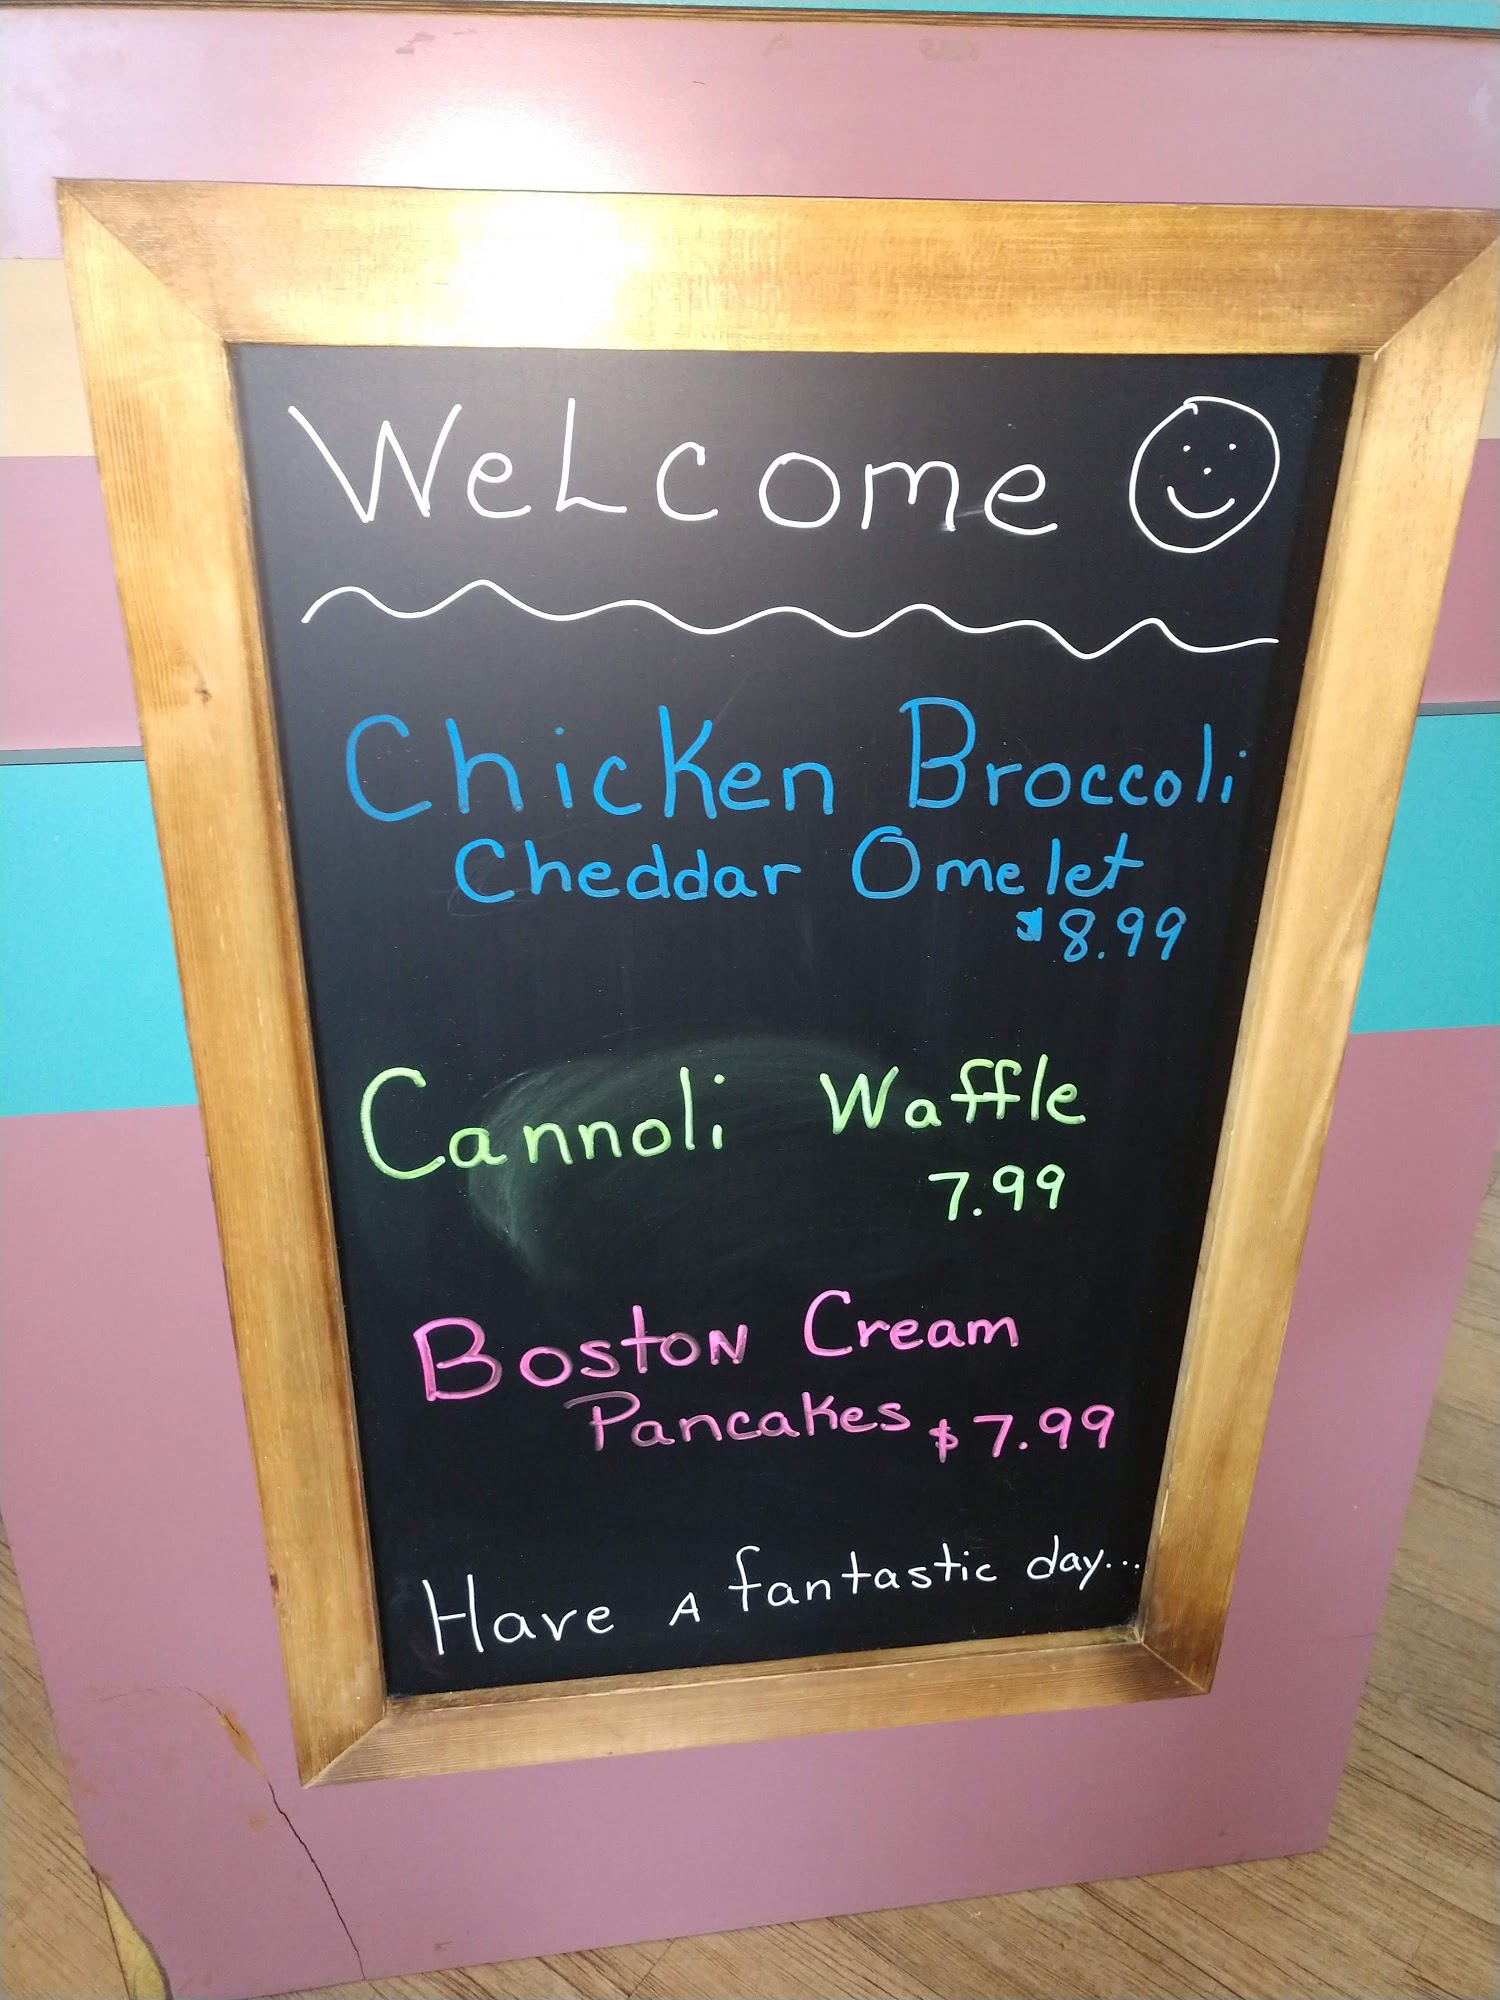 WeLcome
Chicken Broccoli
Cheddar Omelet
$8.99
Cannoli Waffle
7.99
Boston Cream
Pancakes $7.99
Have A fantastic day...